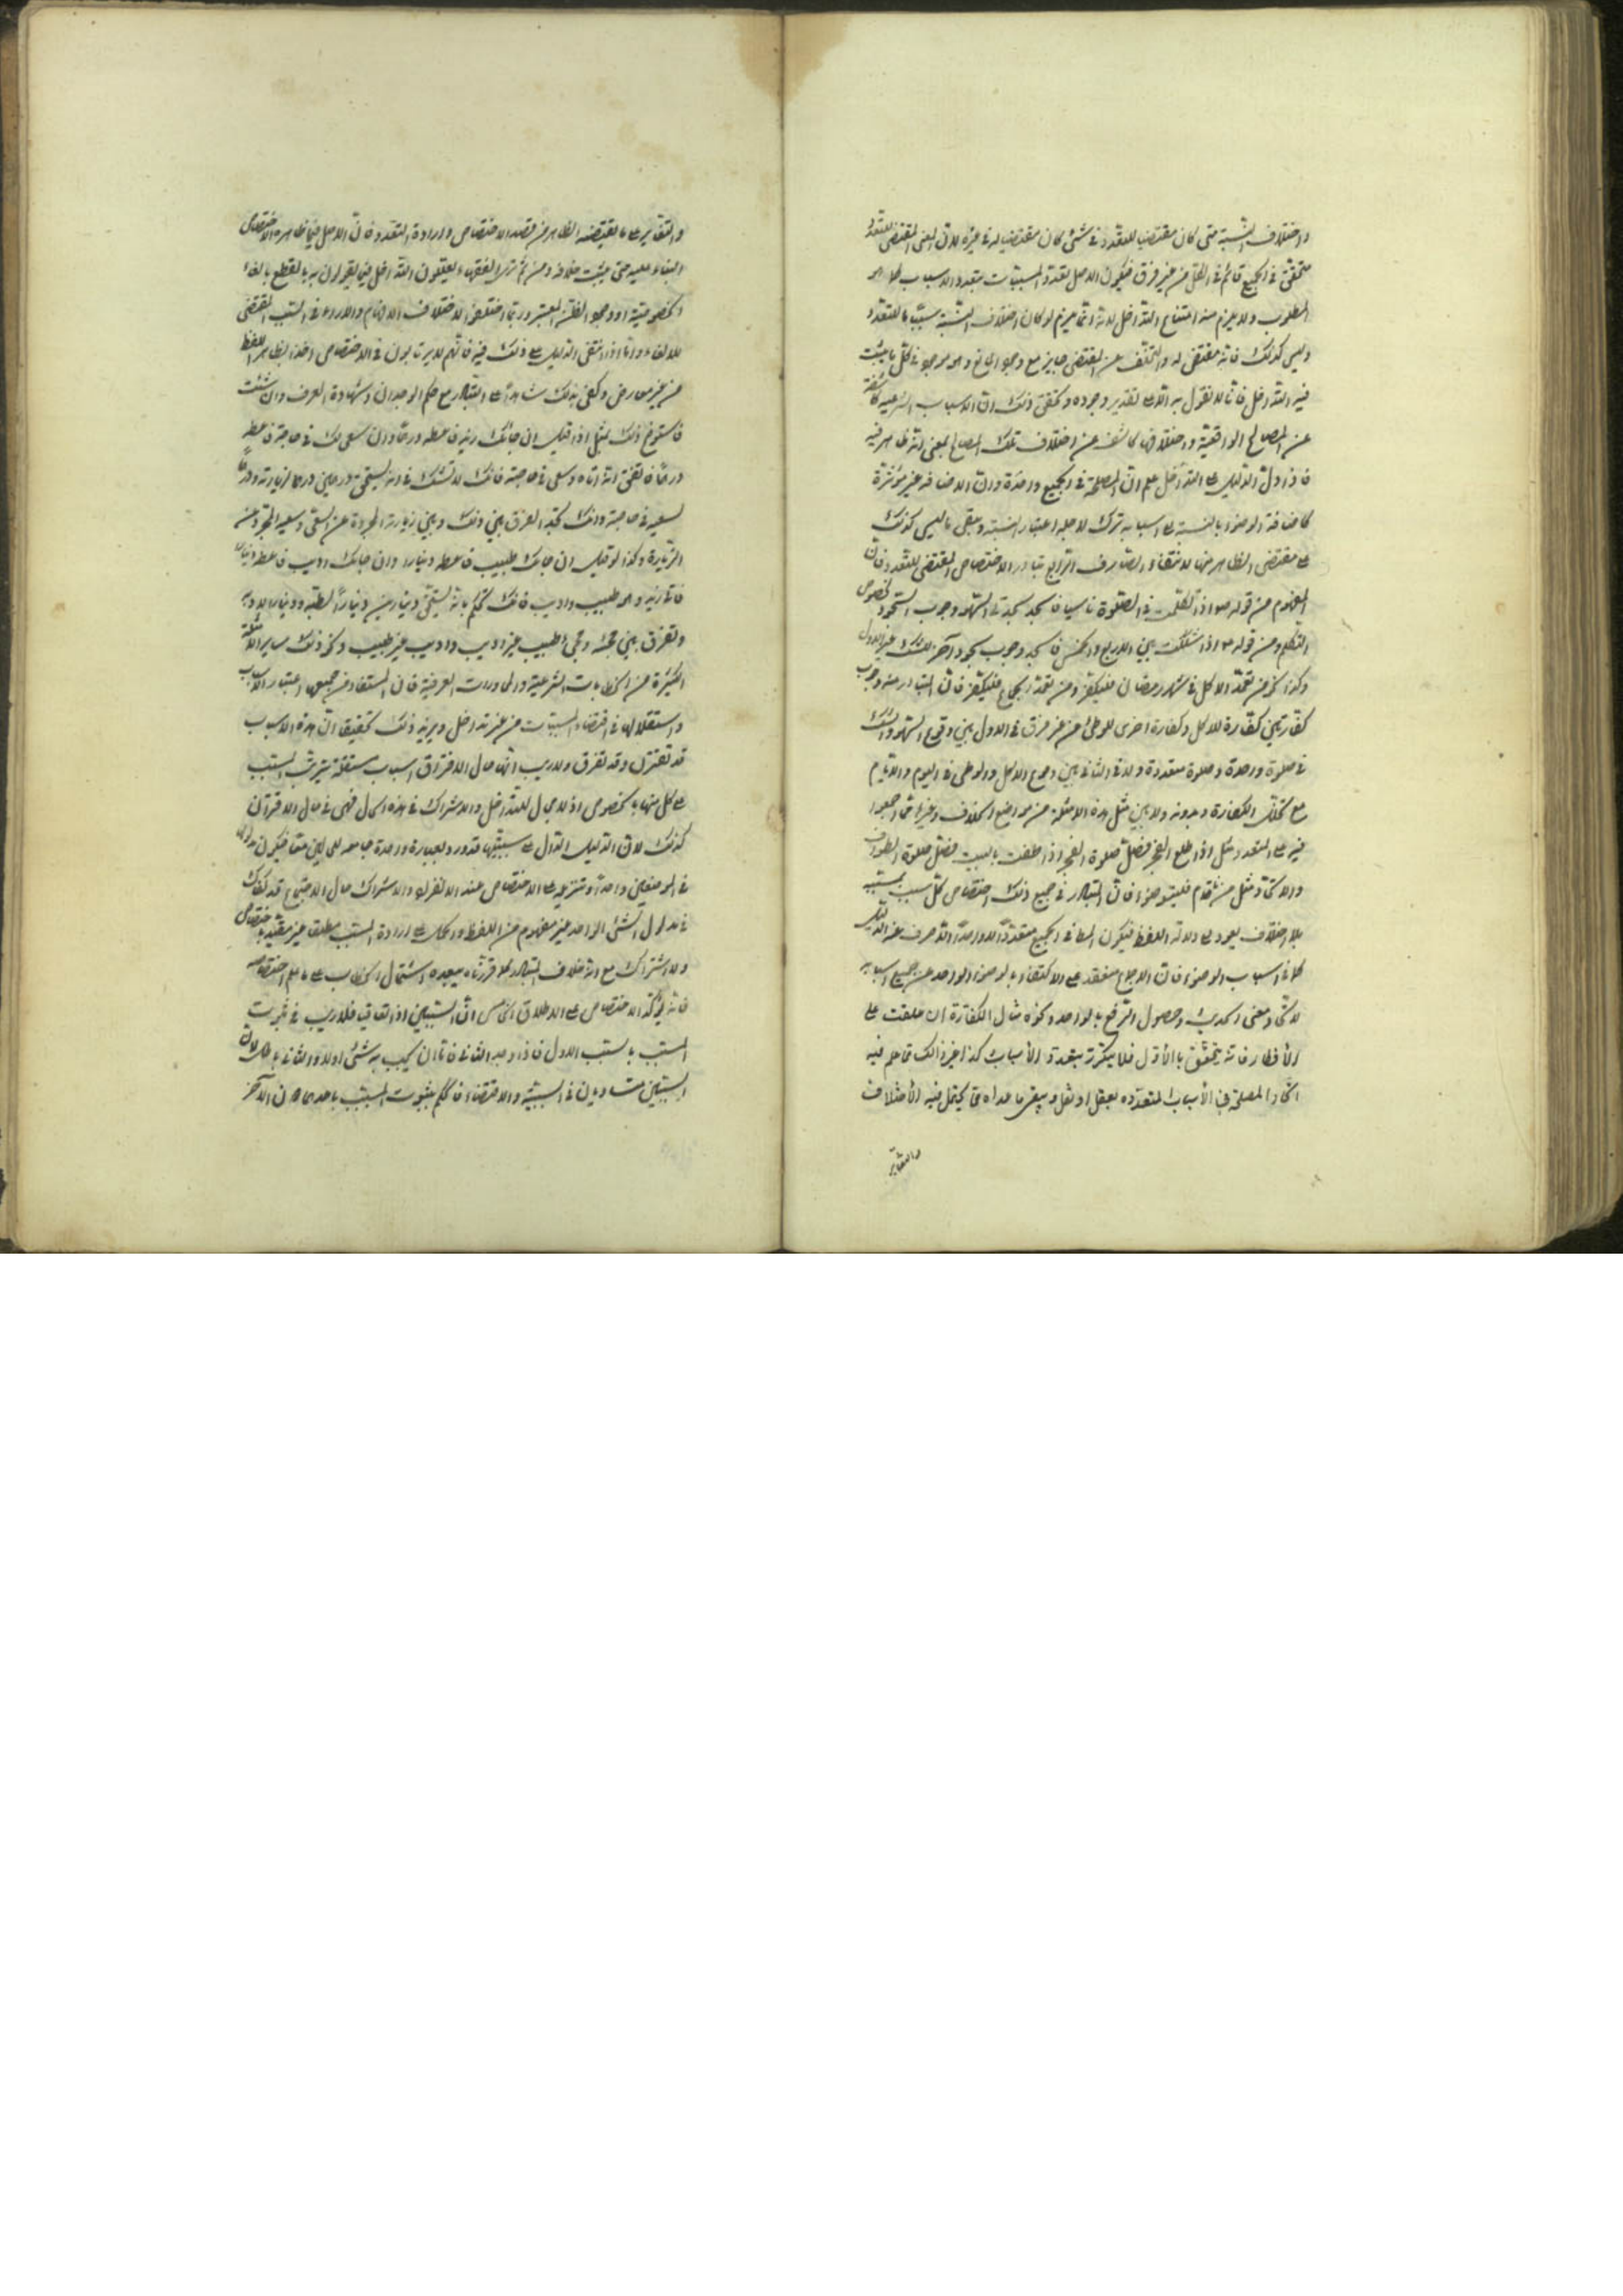 واختلاف النسبة متى كان مقتضيا للتعدد في شيء كان مقتضيا له في غيره لان المعنى المقتضي للتعدد
متحقق في الجميع قائم في الكل من غير فرق فيكون الاصل تعدد المسببات بتعدد الاسباب كما هو
المطلوب ولا يلزم منه امتناع التداخل لانه انما يلزم لو كان اختلاف النسبة سببا تاما للتعدد
وليس كذلك فانه مقتضى له والتخلف عن المقتضي جايز مع وجود المانع وهو موجود في كل ما يثبت
فيه التداخل فانا لا نقول به الا على تقدير وجوده وتحقيق ذلك ان الاسباب الشرعية كاشفة
عن المصالح الواقعية واختلافها كاشف عن اختلاف تلك المصالح بمعنى انه ظاهر فيه
فاذا دل الدليل على التداخل علم ان المصلحة في الجميع واحدة وان الاضافة غير مؤثرة
كاضافة الوضوء بالنسبة الى اسبابه ترك لاجله اعتبار النسبة ويبقى ما ليس كذلك
على مقتضى الظاهر منها لانتفاء الصارف الرابع تبادر الاختصاص المقتضي للتعدد فان
المفهوم من قوله اذا تكلمت في الصلوة ناسيا فاسجد سجدتي السهو وجوب السجود لخصوص
التكلم ومن قوله اذا شككت بين الاربع والخمس فاسجد وجوب سجود آخر للشك غير الاول
وكذا نحو من تعمد الاكل في شهر رمضان فليكفر ومن تعمد الجماع فليكفر فان المتبادر منه وجوب
كفارتين كفارة للاكل وكفارة اخرى للوطئ من غير فرق في الاول بين وقوع السهو والشك
في صلوة واحدة وصلوة متعددة ولا في الثاني بين وقوع الاكل والوطئ في اليوم والايام
مع تخلل الكفارة وبدونه ولا بين مثل هذه الامثلة من مواضع الخلاف وغيرها مما اجمعوا
فيه على التعدد مثل اذا طلع الفجر فصل صلوة الفجر اذا طفت بالبيت فصل صلوة الطواف
والاتحاد مثل من نام فليتوضأ فان المتبادر في جميع ذلك اختصاص كل سبب بمسببه
بلا اختلاف يعود الى دلالة اللفظ فيكون المعنى في الجميع متعددا لا واحدا الا لصرف عنه الدليل
كما في اسباب الوضوء فان الاجماع منعقد على الاكتفاء بالوضوء الواحد عن جميع اسبابه
لاتحاد معنى الحدث وحصول الرفع بالواحد ونحوه مثال الكفارة ان علقت على
الأفطار فانه يتحقق بالأول فلا يتكرر بتعدد الأسباب كذا غير ذالك مما علم فيه
اتحاد المصلحة في الأسباب المتعدده بعقل او نقل ويبقى ما عداه مما يحتمل فيه الأختلاف
والتغاير
والتغاير على ما يقتضيه الظاهر من قصد الاختصاص وارادة التعدد فان الاصل فيما ظاهره الاختصاص
البناء عليه حتى يثبت خلافه ومن ثم ترى الفقهاء يعللون التداخل فيما يقولون به بالقطع بالغاء
الخصوصية او وجود الظن المعتبر وربما اختلفوا لاختلاف الافهام والاراء في السبب المقتضي
للالغاء واما اذا انتفى الدليل على ذلك فيه فانهم لا يرتابون في الاختصاص اخذا بظاهر اللفظ
من غير معارض وكفى بذلك شاهدا على التبادر مع حكم الوجدان وشهادة العرف وان شئت
فاستوضح ذلك بمثل اذا قيل ان جائك زيد فاعطه درهما وان سعى لك في حاجة فاعطه
درهما فاتفق انه اتاه وسعى في حاجته فانك لا تشك في انه يستحق درهمين درهما لزيارته ودرهما
لسعيه في حاجته وانك تجد الفرق بين ذلك وبين زيارته المجردة عن السعي وسعيه المجرد عن
الزيارة وكذا لو قيل ان جائك طبيب فاعطه دينارا وان جائك اديب فاعطه دينارا
فاتى زيد وهو طبيب واديب فانك تحكم بانه يستحق دينارين دينارا لطبه ودينارا لادبه
وتفرق بين مجيئه ومجيء طبيب غير اديب واديب غير طبيب وكذ ذلك ساير الامثلة
الكثيرة من الخطابات الشرعية والمحاورات العرفية فان المستفاد من جميعها اعتبار الاسباب
واستقلالها في اقتضاء المسببات من غير تداخل ويزيد ذلك تحقيقا ان هذه الاسباب
قد تقترن وقد تفترق ولا ريب انها حال الافتراق اسباب مستقلة يترتب المسبب
على كل منها بخصوص اذ لا مجال للتداخل والاشتراك في هذه الحال فهي في حال الاقتران
كذلك لان الدليل الدال على سببيتها قد ورد بعبارة واحدة جامعة للحالين معا فيكون مدلوله
في الموضعين واحدا وتنزيله على الاختصاص عند الانفراد والاشتراك حال الاجتماع قد يفكك
في مدلول الشيء الواحد غير مفهوم من اللفظ والحمل على ارادة المسبب مطلقا غير مقيد باختصاص
ولا اشتراك مع انه خلاف المتبادر كما قررناه يبعده اشتمال الخطاب على ما علم اختصاصه
فانه يؤكد الاختصاص على الاطلاق الخامس ان السببين اذا تعاقبا فلا ريب في ثبوت
المسبب بالسبب الاول فاذا وجد الثاني فاما ان يجب به شيء او لا والثاني باطل لان
السببين متساويان في السببية والاقتضاء فالحكم بثبوت المسبب باحدهما دون الآخر